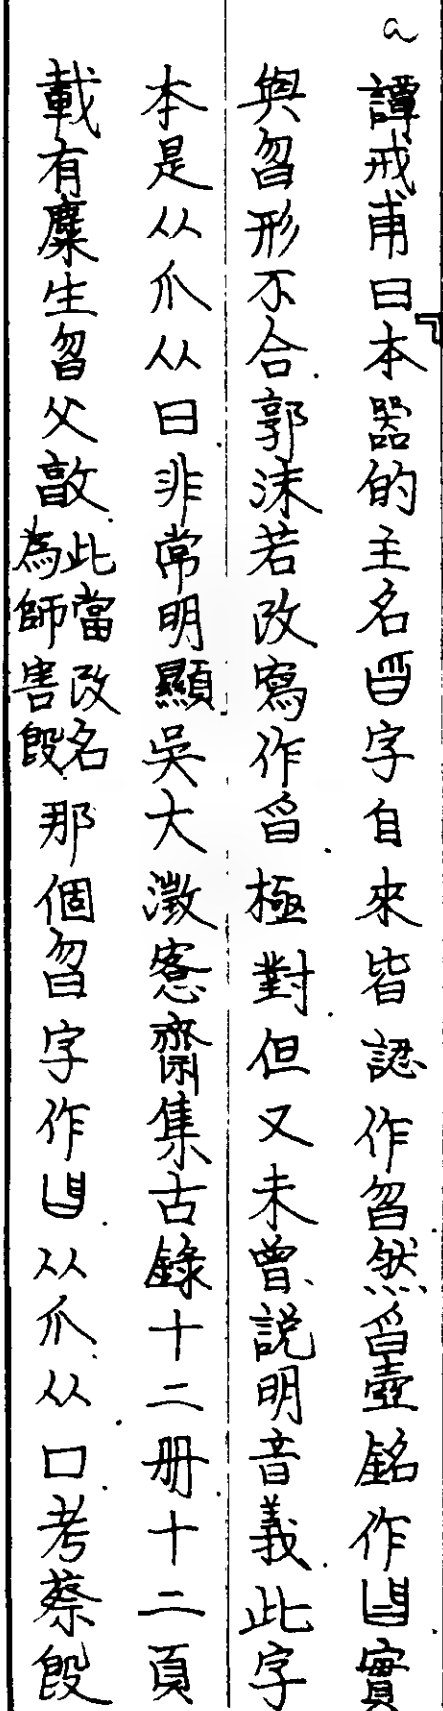 a
譚戒甫曰本器的主名字自來皆認作曶然舀壺銘作實
與曶形不合郭沫若改寫作舀極對但又未曾說明音義此字
本是从爪从曰非常明顯吳大澂愙齋集古錄十二册十二頁
載有麋生曶父㪤此當改名為師害毁那個曶字作从爪从口考蔡毁